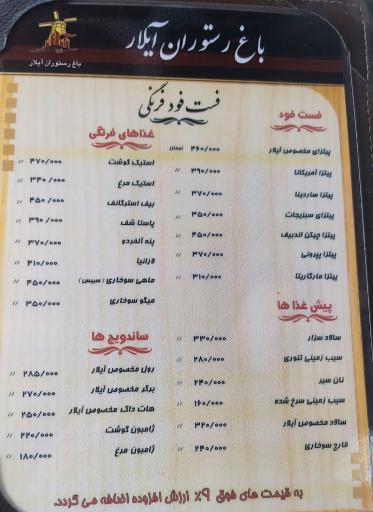 باغ رستوران آیلار
باغ رستوران آیلار
فست فود فرنگی
فست فود
پیتزای مخصوص آیلار ۴۶۰/۰۰۰ تومان
پیتزا آمریکانا ۳۹۰/۰۰۰ //
پیتزا ساردینا ۳۷۰/۰۰۰ //
پیتزای سبزیجات ۳۵۰/۰۰۰ //
پیتزا چیکن اندبیف ۴۵۰/۰۰۰ //
پیتزا پپرونی ۳۷۰/۰۰۰ //
پیتزا مارگاریتا ۳۱۰/۰۰۰ //
پیش غذا ها
سالاد سزار ۳۳۰/۰۰۰ //
سیب زمینی تنوری ۲۸۰/۰۰۰ //
نان سیر ۲۴۰/۰۰۰ //
سیب زمینی سرخ شده ۱۶۰/۰۰۰ //
سالاد مخصوص آیلار ۳۲۰/۰۰۰ //
قارچ سوخاری ۲۴۰/۰۰۰ //
غذاهای فرنگی
استیک گوشت ۴۷۰/۰۰۰ //
استیک مرغ ۳۴۰/۰۰۰ //
بیف استرگانف ۴۵۰/۰۰۰ //
پاستا شف ۳۹۰/۰۰۰ //
پنه آلفردو ۳۷۰/۰۰۰ //
لازانیا ۴۱۰/۰۰۰ //
ماهی سوخاری (سیبس) ۴۵۰/۰۰۰ //
میگو سوخاری ۳۵۰/۰۰۰ //
ساندویچ ها
رول مخصوص آیلار ۲۸۵/۰۰۰ //
برگر مخصوص آیلار ۲۷۰/۰۰۰ //
هات داگ مخصوص آیلار ۲۵۰/۰۰۰ //
ژامبون گوشت ۲۲۰/۰۰۰ //
ژامبون مرغ ۱۸۰/۰۰۰ //
به قیمت های فوق ۹٪ ارزش افزوده اضافه می گردد.